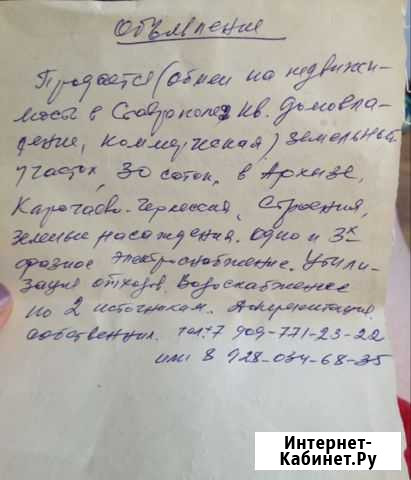 Объявление
Продается (обмен на недвижи-
мость в Ставрополе, кв. домовла-
дение, коммерческая) земельный
участок, 30 соток, в Архызе,
Карачаево-Черкессия, Строения,
зеленые насаждения. Одно и 3х
фазное электроснабжение. Утили-
зация отходов. Водоснабжение
по 2 источникам. Документация.
собственник. тел.+7 909-771-23-22
или 8 928-034-68-35
Интернет-
Кабинет.Ру